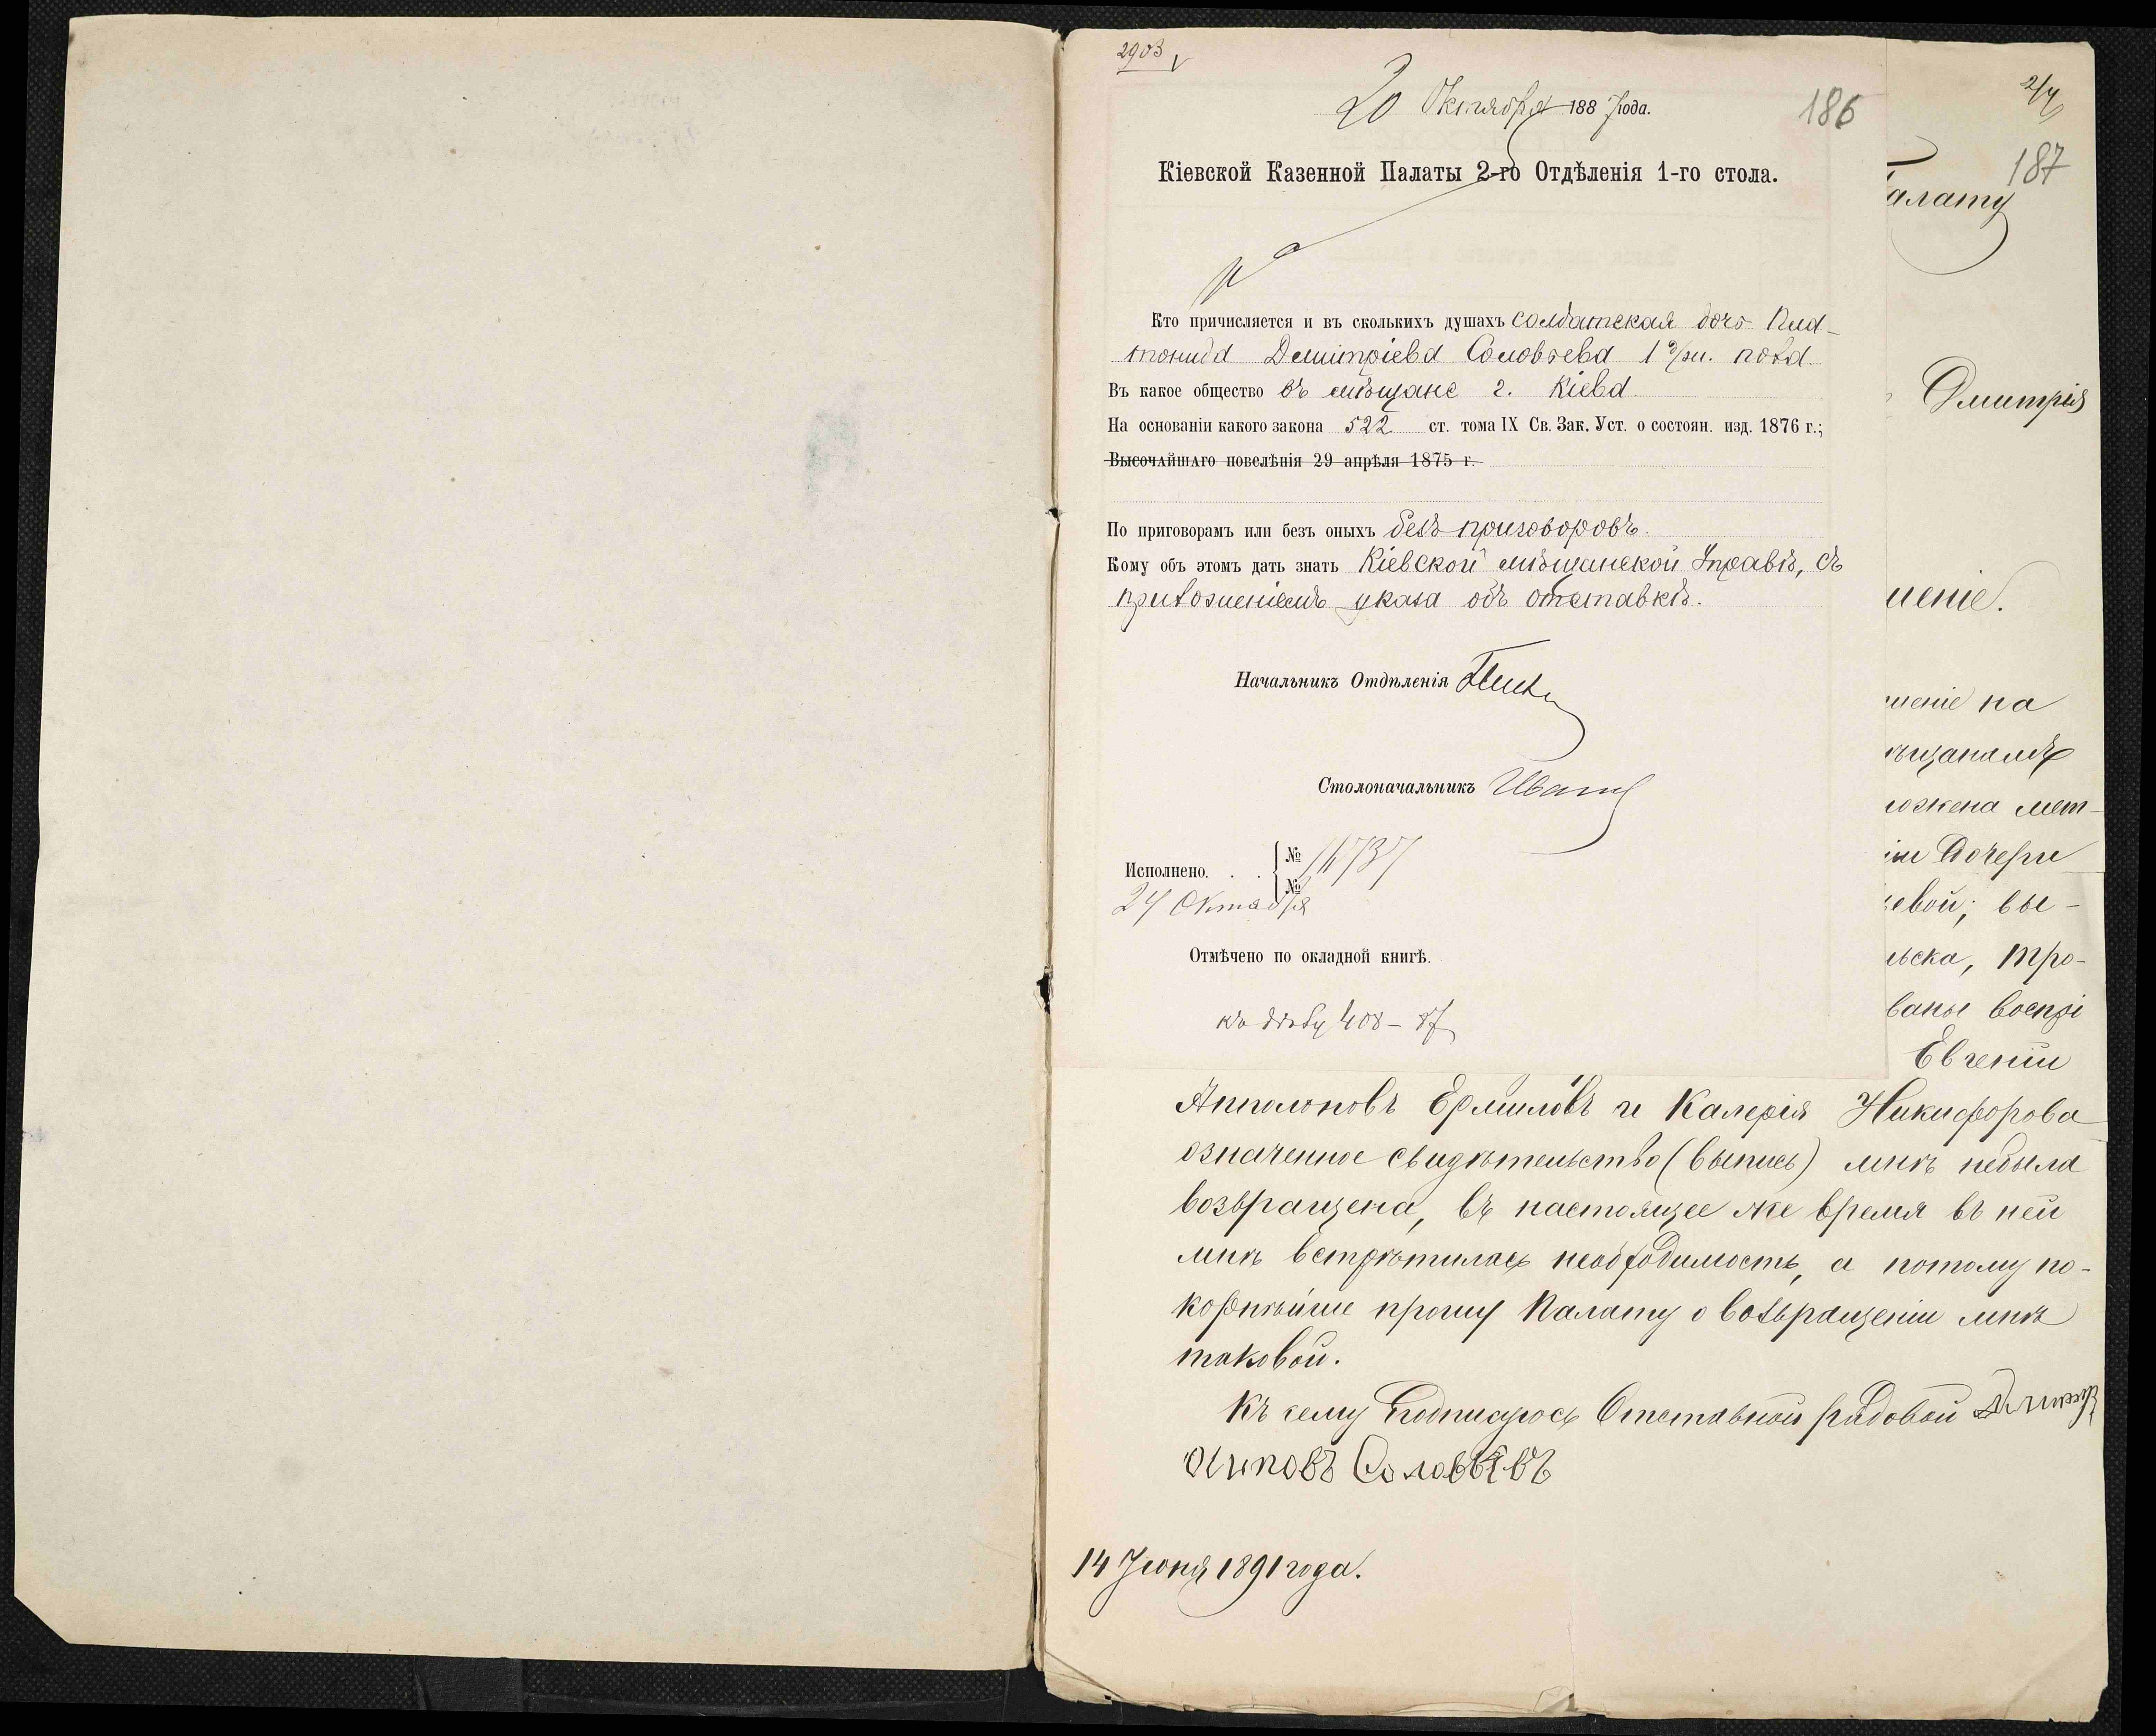 2903
20 Октября 1887 года.
186
Кіевской Казенной Палаты 2-го Отдѣленія 1-го стола.
Кто причисляется и въ сколькихъ душахъ солдатская дочь
Димитріева Соловьева 1 пола
Въ какое общество въ мѣщане г. Кіева
На основаніи какого закона 522 ст. тома IX Св. Зак. Уст. о состоян. изд. 1876 г.;
Высочайшаго повелѣнія 29 апрѣля 1875 г.
По приговорамъ или безъ оныхъ безъ приговоровъ.
Кому объ этомъ дать знать Кіевской мѣщанской Управѣ, съ
приложеніемъ указа объ отставкѣ.
Начальникъ Отдѣленія
Столоначальникъ
Исполнено. . . №
№
24 Октября
Отмѣчено по окладной книгѣ.
къ дѣлу 408 – 87
187
алату
Дмитрія
шеніе.
шеніе на
ѣщанамъ
ложена мет-
іи дочери
евой; вы-
ьска, тро-
ваны воспрі
Евгеніи
Апполоновъ Ермиловъ и Калерія Никифорова
означенное свидѣтельство (выпись) мнѣ небыла
возвращена, въ настоящее же время въ ней
мнѣ встрѣтилась необходимость, а потому по-
корнѣйше прошу Палату о возвращеніи мнѣ
таковой.
Къ сему подписуюсь Отставной рядовой Дмитр
осиповъ Соловьевъ
14 Іюня 1891 года.